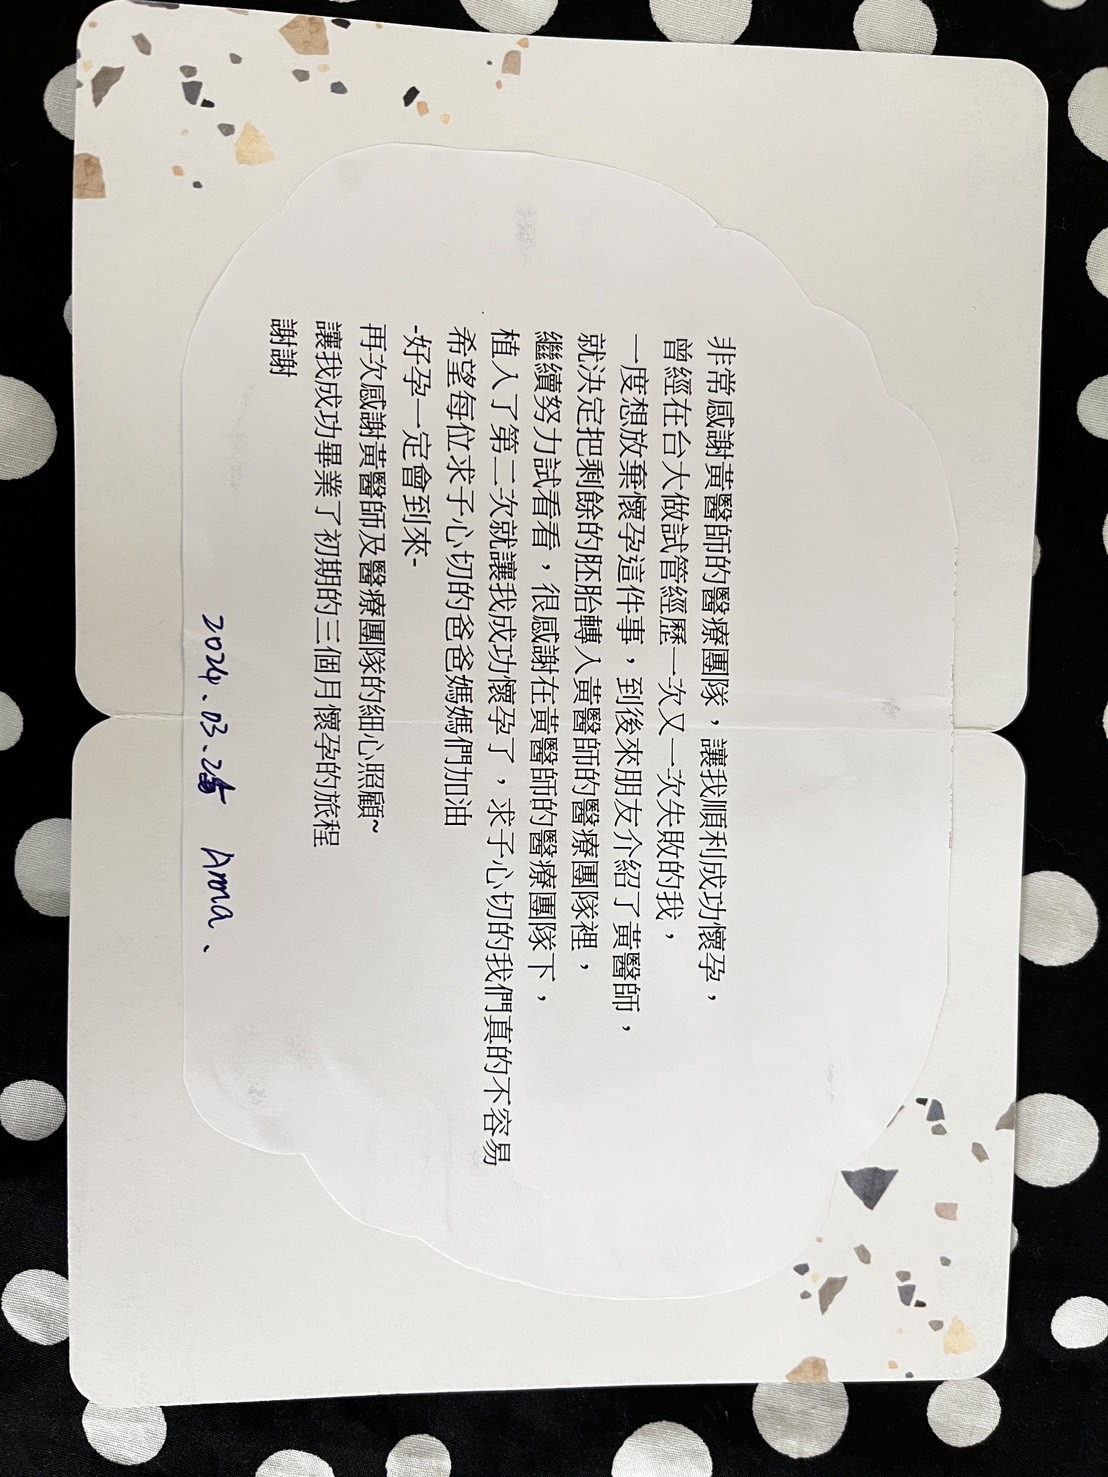 非常感謝黃醫師的醫療團隊，讓我順利成功懷孕，
曾經在台大做試管經歷一次又一次失敗的我，
一度想放棄懷孕這件事，到後來朋友介紹了黃醫師，
就決定把剩餘的胚胎轉入黃醫師的醫療團隊裡，
繼續努力試看看，很感謝在黃醫師的醫療團隊下，
植入了第二次就讓我成功懷孕了，求子心切的我們真的不容易
希望每位求子心切的爸爸媽媽們加油
-好孕一定會到來-
再次感謝黃醫師及醫療團隊的細心照顧~
讓我成功畢業了初期的三個月懷孕的旅程
謝謝
2024.03. Anna.